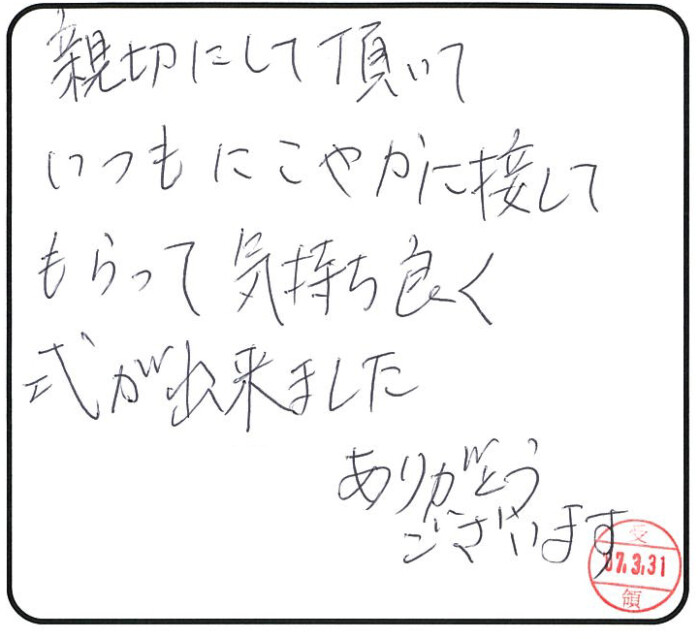 親切にして頂いて
いつもにこやかに接して
もらって気持ち良く
式が出来ました
ありがとう
ございます
受
07.3.31
領